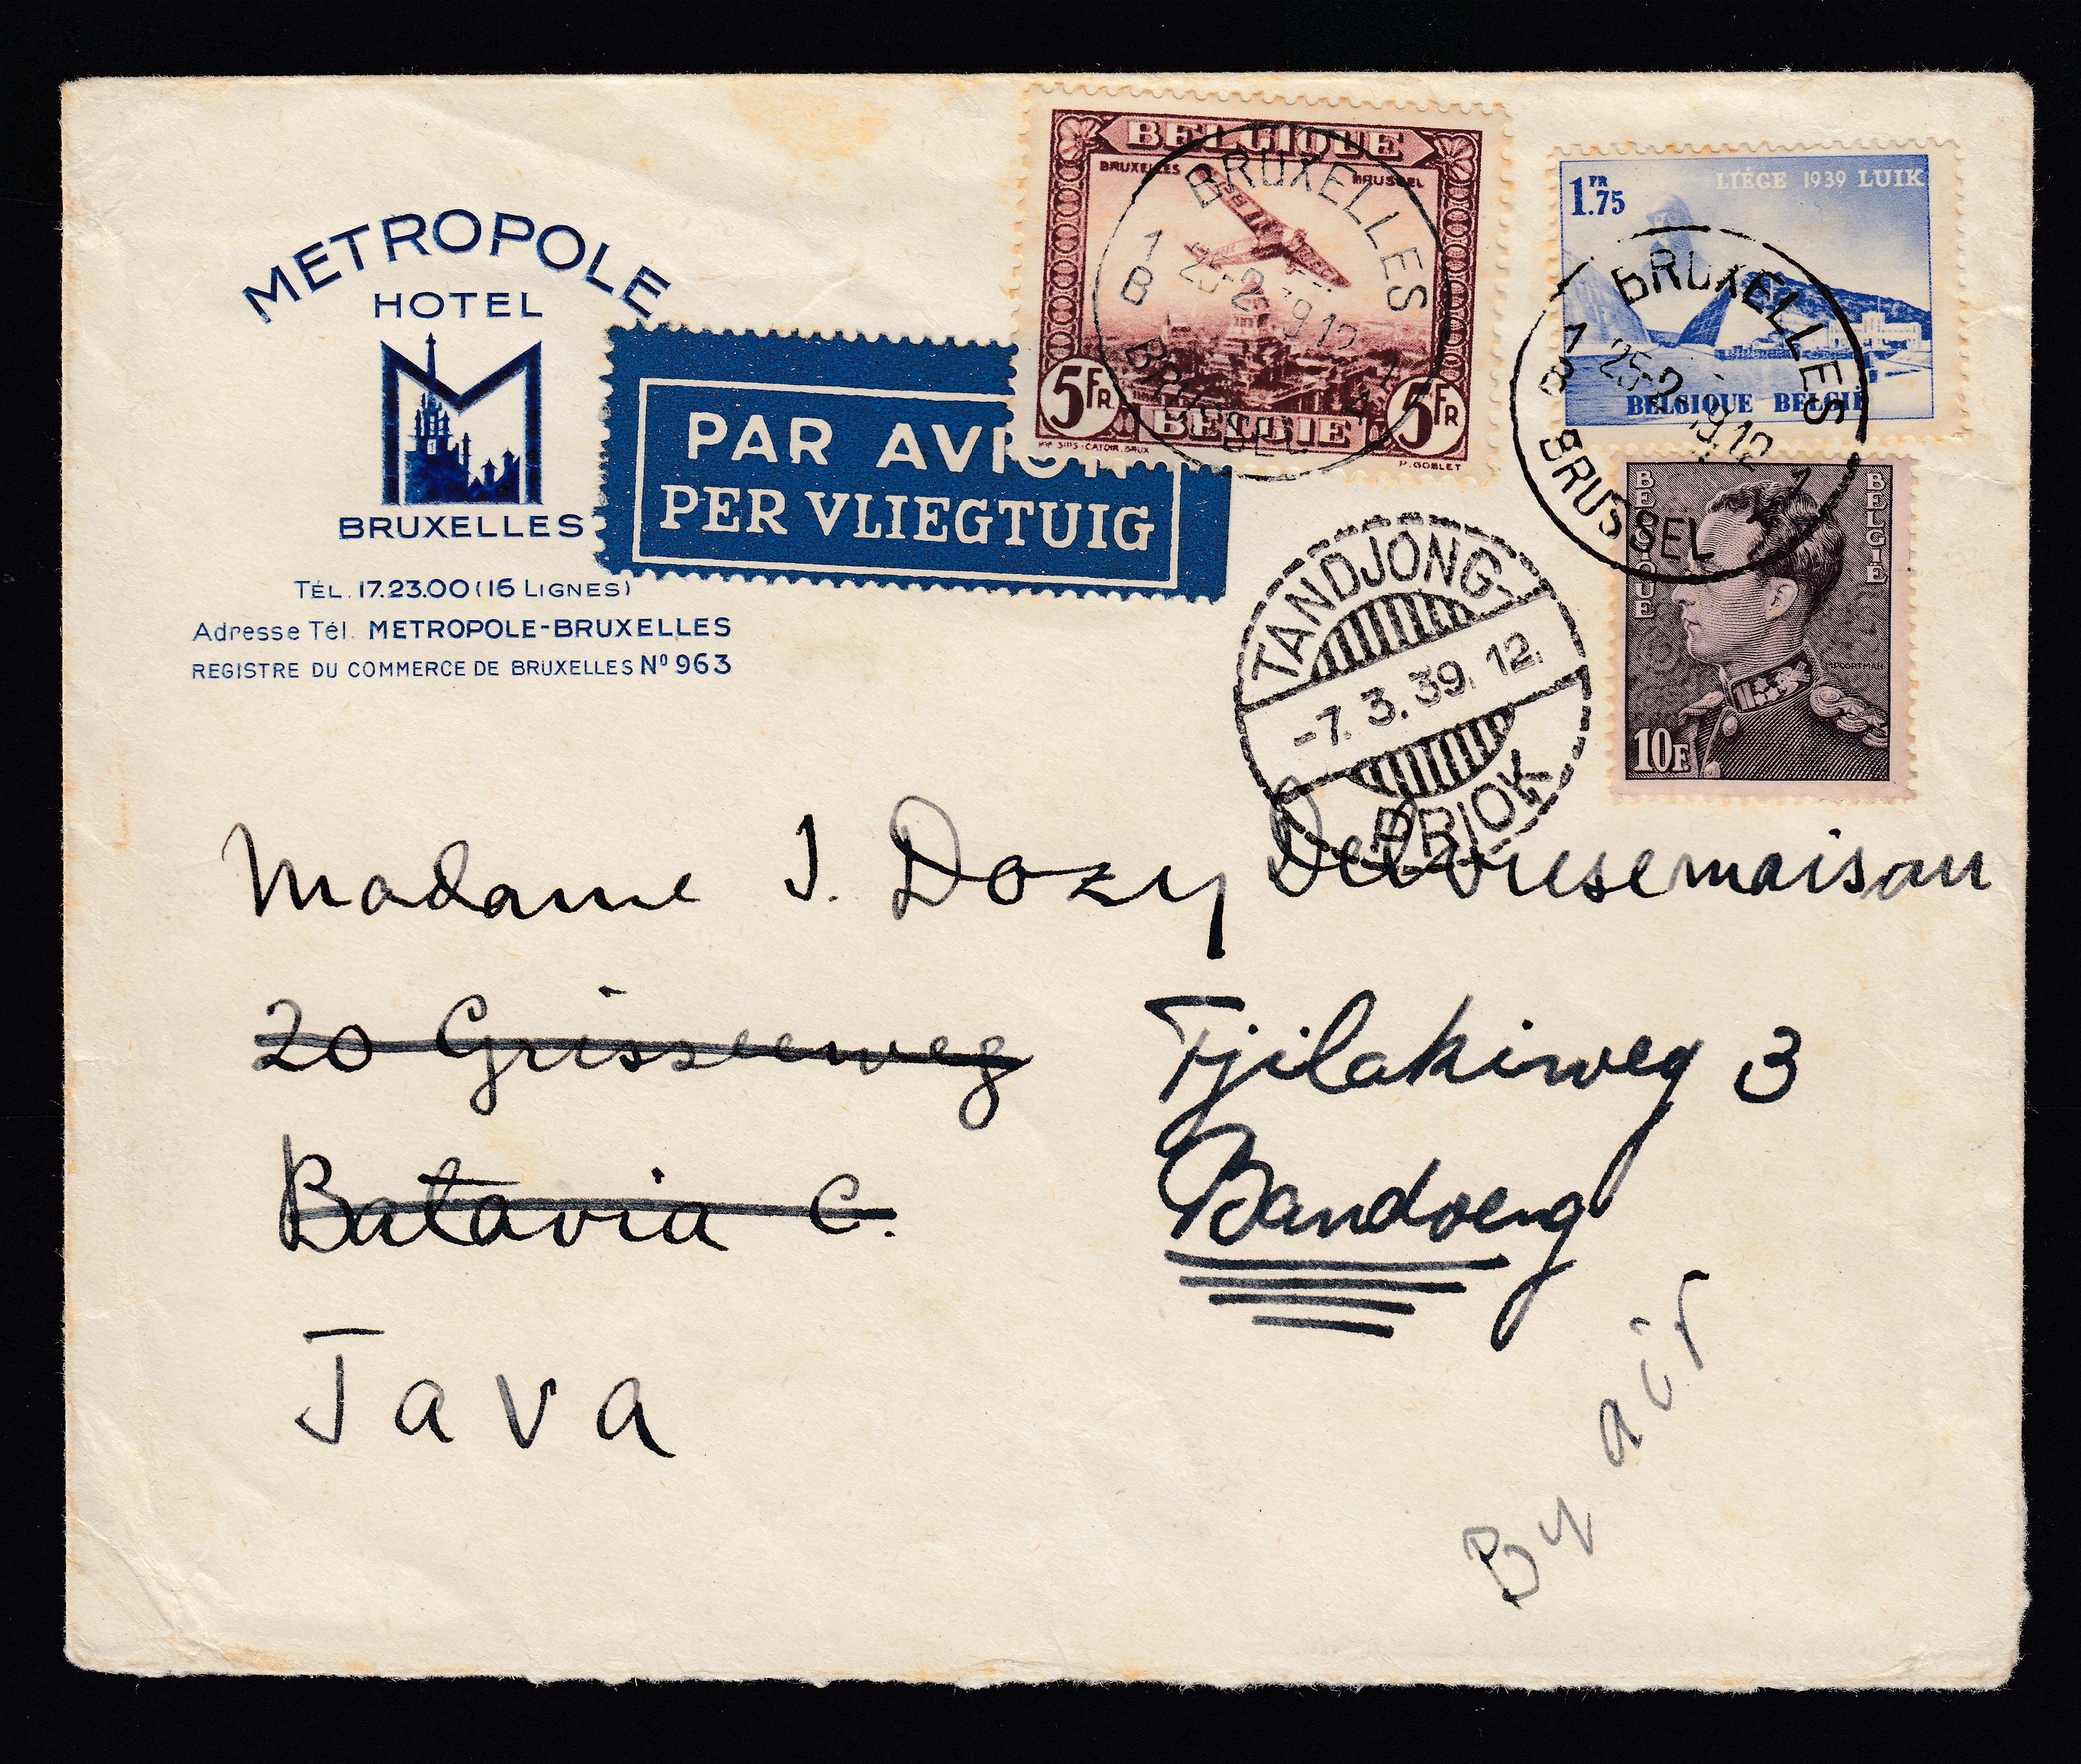 METROPOLE
HOTEL
BRUXELLES
TÉL. 17.23.00 (16 LIGNES)
Adresse Tél. METROPOLE-BRUXELLES
REGISTRE DU COMMERCE DE BRUXELLES Nº 963
PAR AVION
PER VLIEGTUIG
BELGIQUE
BRUXELLES BRUSSEL
5FR 5FR
BELGIË
IMP. SIPS: CATOIR. BRUX P. GOBLET
BRUXELLES
1 B
BRUSSEL
1FR.75
LIÉGE 1939 LUIK
BELGIQUE BELGIË
BRUXELLES
1 B
25-2
BRUSSEL
BELGIQUE
BELGIË
M.POORTMAN
10F
TANDJONG-
-7.3.39.12.
PRIOK
Madame J. Dozy
20 Grisseeweg
Batavia C.
Java
Tjilakiweg 3
Bandoeng
By air